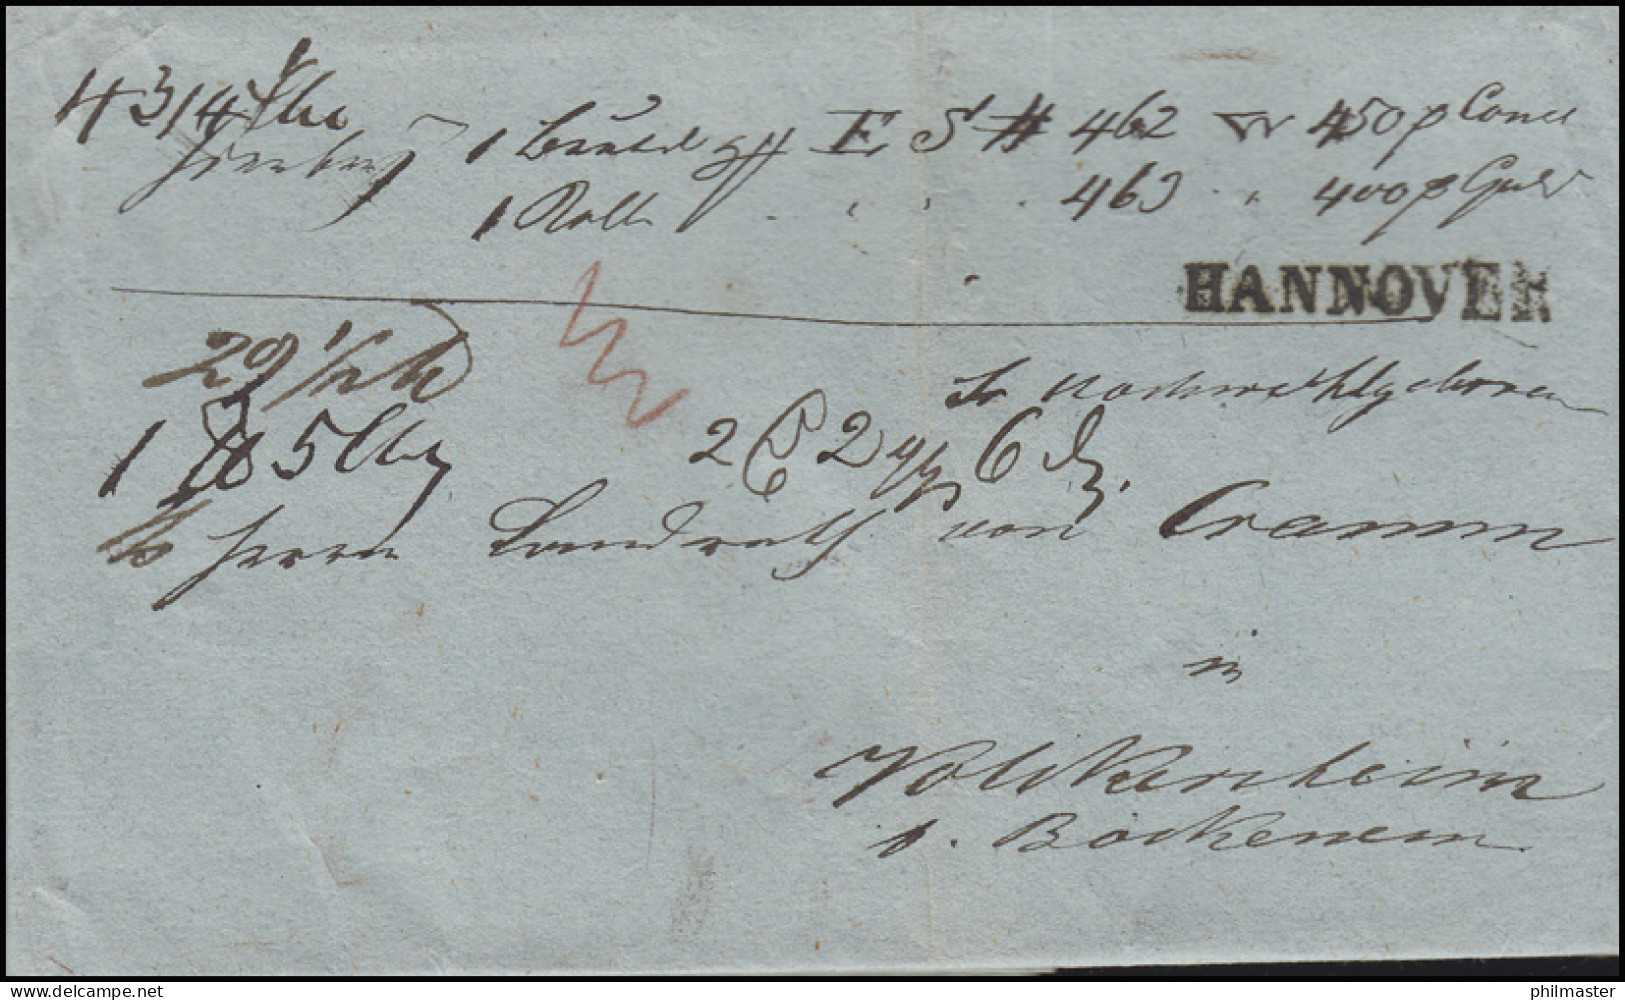 4314
hierbey 1 Beutel gz. E. S # 462 w 450 p Cour
1 Rolle . . . . 463 " 400 p Gold
HANNOVER
29 1/2
Sr Hochwohlgeboren
1 5
2 2 6
Herrn Landrath von Cramm
in
Volkersheim
b. Bockenem
delcampe.net
philmaster